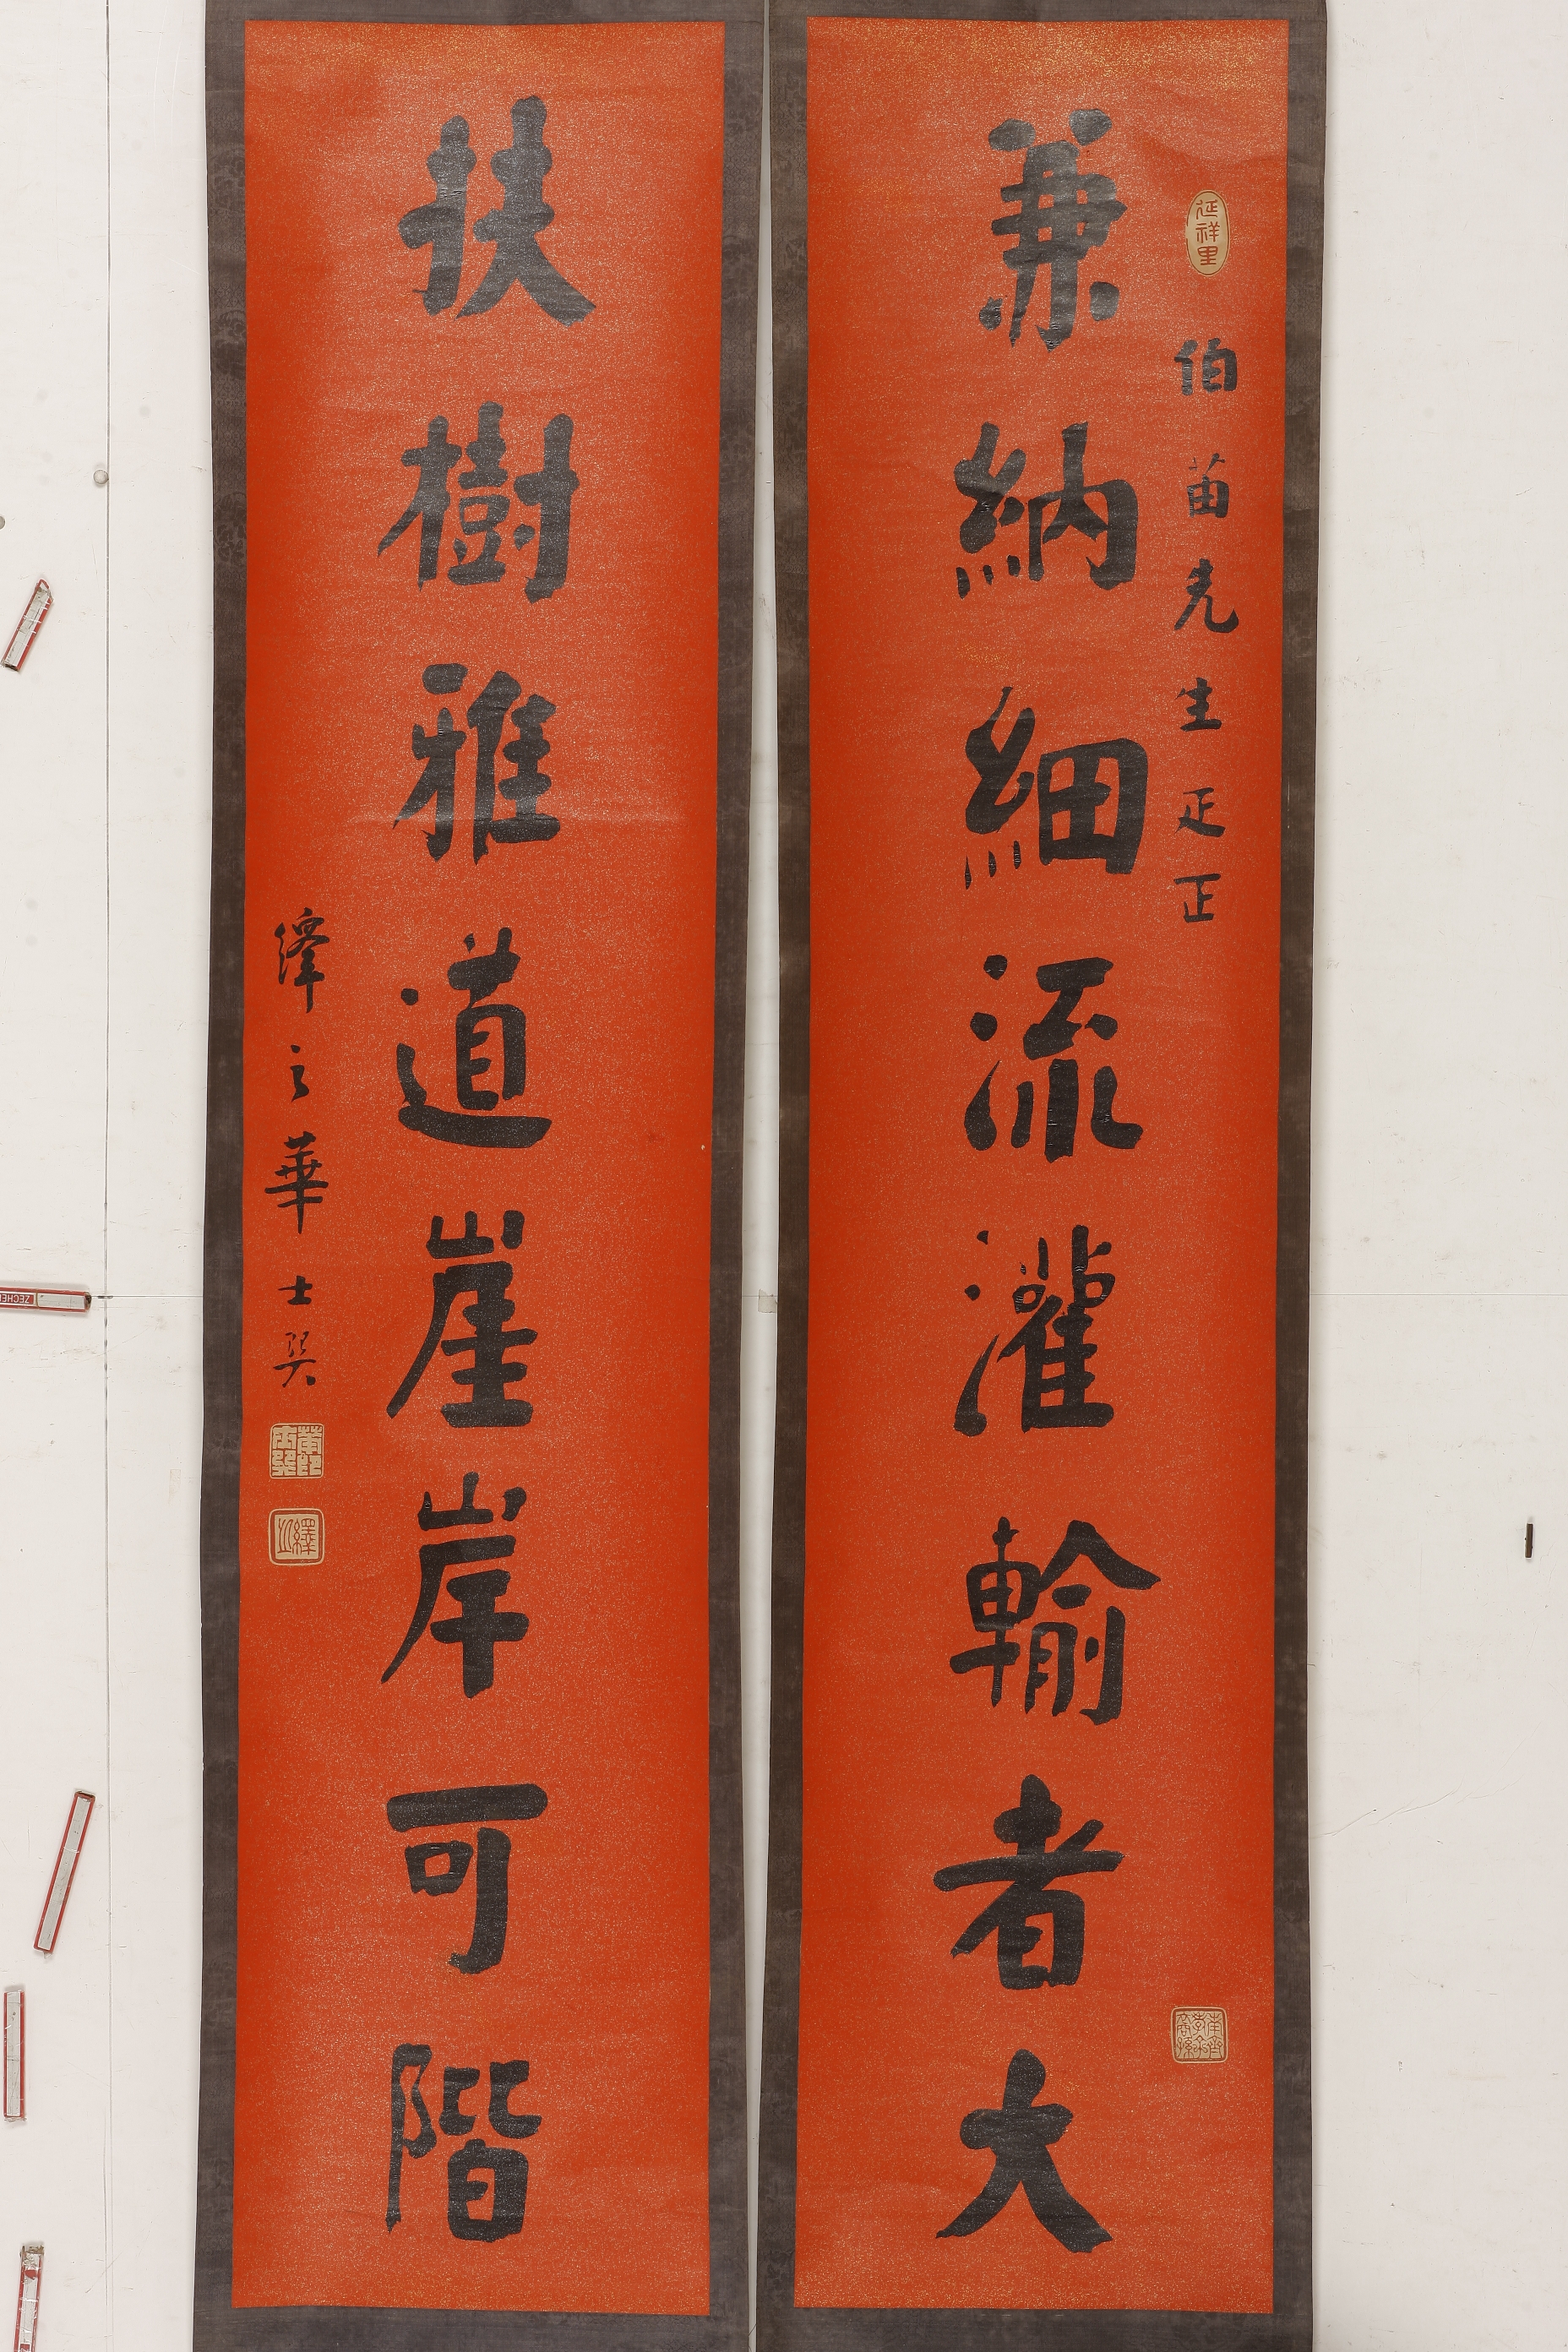 延祥里
伯苗先生疋正
兼納細流灌輸者大
扶樹雅道崖岸可階
繹之華士巽
繹之